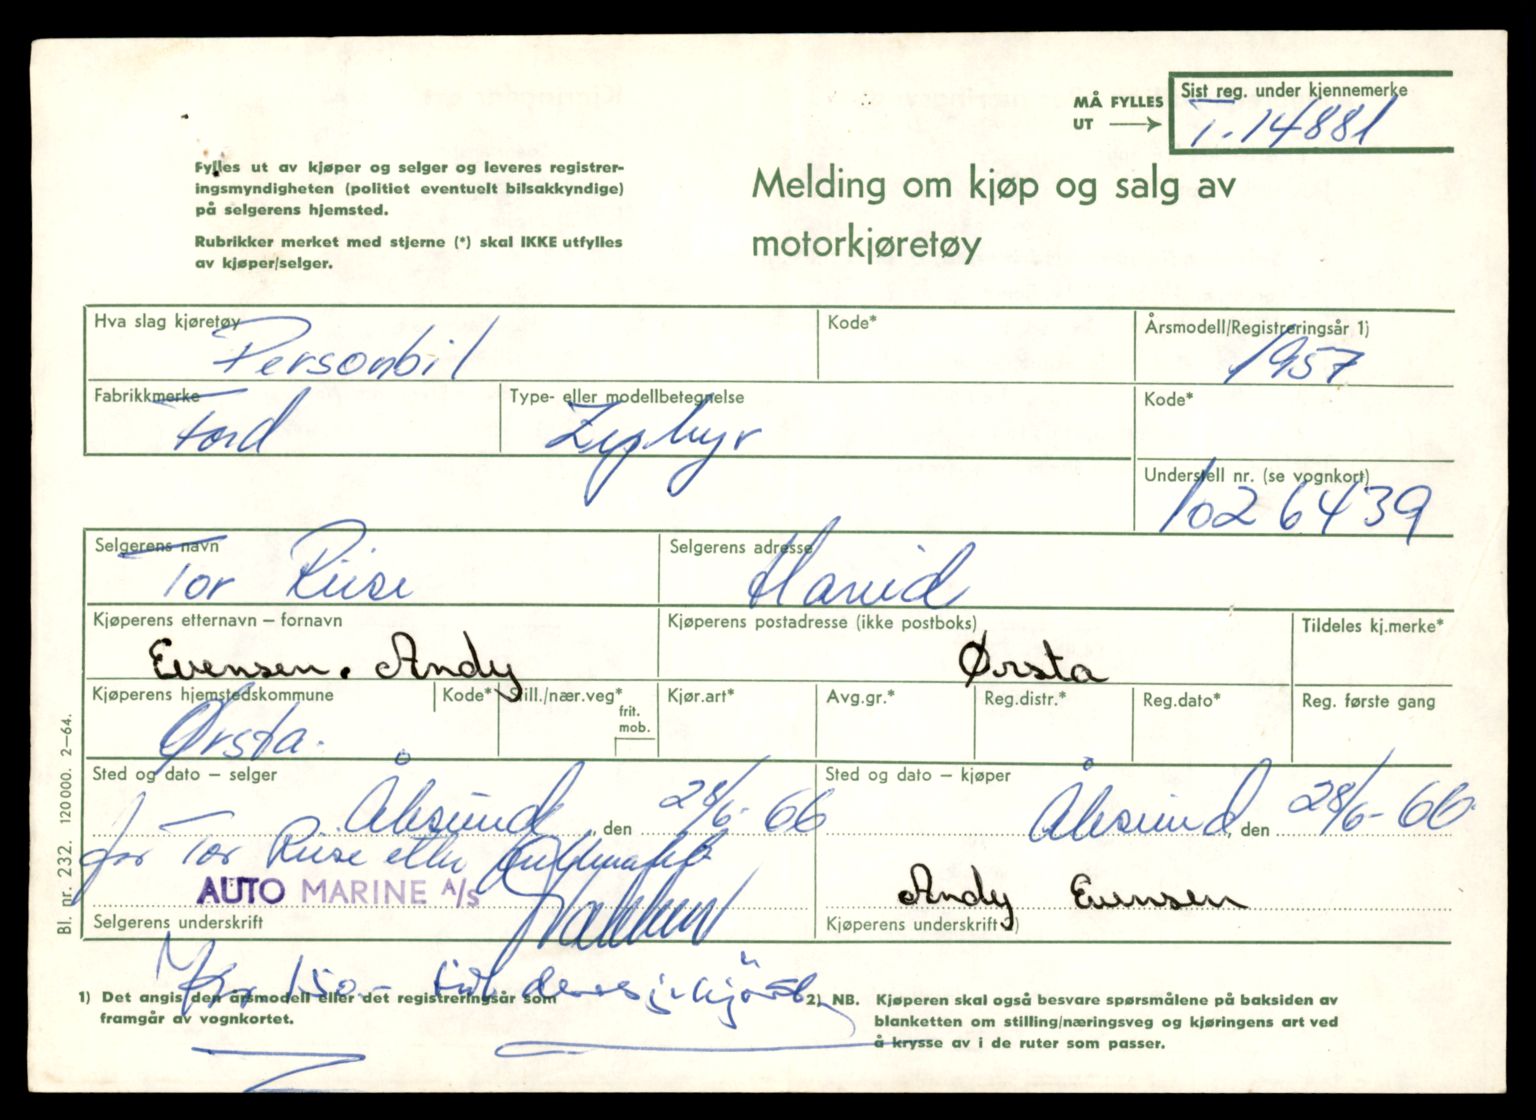 MÅ FYLLES
UT
Sist reg. under kjennemerke
T.14881
Fylles ut av kjøper og selger og leveres registrer-
ingsmyndigheten (politiet eventuelt bilsakkyndige)
på selgerens hjemsted.
Rubrikker merket med stjerne (*) skal IKKE utfylles
av kjøper/selger.
Melding om kjøp og salg av
motorkjøretøy
Hva slag kjøretøy
Personbil
Kode*
Årsmodell/Registreringsår 1)
1957
Fabrikkmerke
Ford
Type- eller modellbetegnelse
Zephyr
Kode*
Understell nr. (se vognkort)
1026439
Selgerens navn
Tor Riise
Selgerens adresse
Hareid
Kjøperens etternavn – fornavn
Evensen. Andy
Kjøperens postadresse (ikke postboks)
Ørsta
Tildeles kj.merke*
Kjøperens hjemstedskommune
Ørsta.
Kode*
Still./nær.veg*
frit.
mob.
Kjør.art*
Avg.gr.*
Reg.distr.*
Reg.dato*
Reg. første gang
Sted og dato – selger
Ålesund, den 28/6-66
Sted og dato – kjøper
Ålesund, den 28/6-66
for Tor Riise etter fullmakt
AUTO MARINE A/S
Selgerens underskrift
Andy Evensen
Kjøperens underskrift 2)
Kr 150.-
1) Det angis den årsmodell eller det registreringsår som
framgår av vognkortet.
2) NB. Kjøperen skal også besvare spørsmålene på baksiden av
blanketten om stilling/næringsveg og kjøringens art ved
å krysse av i de ruter som passer.
Bl. nr. 232. 120 000. 2–64.